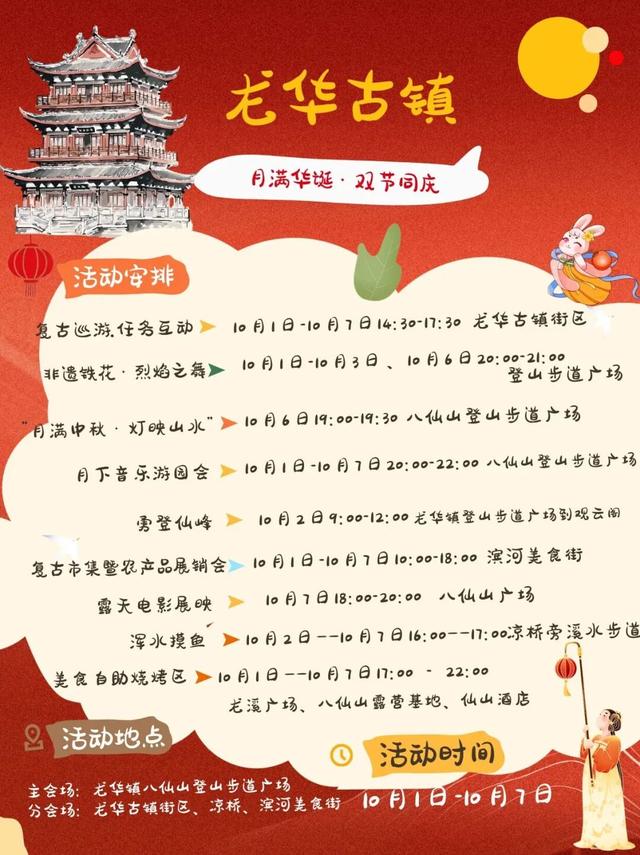 龙华古镇
月满华诞·双节同庆
活动安排
复古巡游、任务互动 10月1日-10月7日14:30-17:30 龙华古镇街区
非遗铁花·烈焰之舞 10月1日-10月3日、10月6日20:00-21:00
登山步道广场
"月满中秋·灯映山水" 10月6日19:00-19:30 八仙山登山步道广场
月下音乐游园会 10月1日-10月7日20:00-22:00 八仙山登山步道广场
勇登仙峰 10月2日9:00-12:00 龙华镇登山步道广场到观云阁
复古市集暨农产品展销会 10月1日-10月7日10:00-18:00 滨河美食街
露天电影展映 10月7日18:00-20:00 八仙山广场
浑水摸鱼 10月2日--10月7日16:00--17:00凉桥旁溪水步道
美食自助烧烤区 10月1日--10月7日17:00 - 22:00
龙溪广场、八仙山露营基地、仙山酒店
活动地点
活动时间
主会场：龙华镇八仙山登山步道广场
分会场：龙华古镇街区、凉桥、滨河美食街
10月1日-10月7日